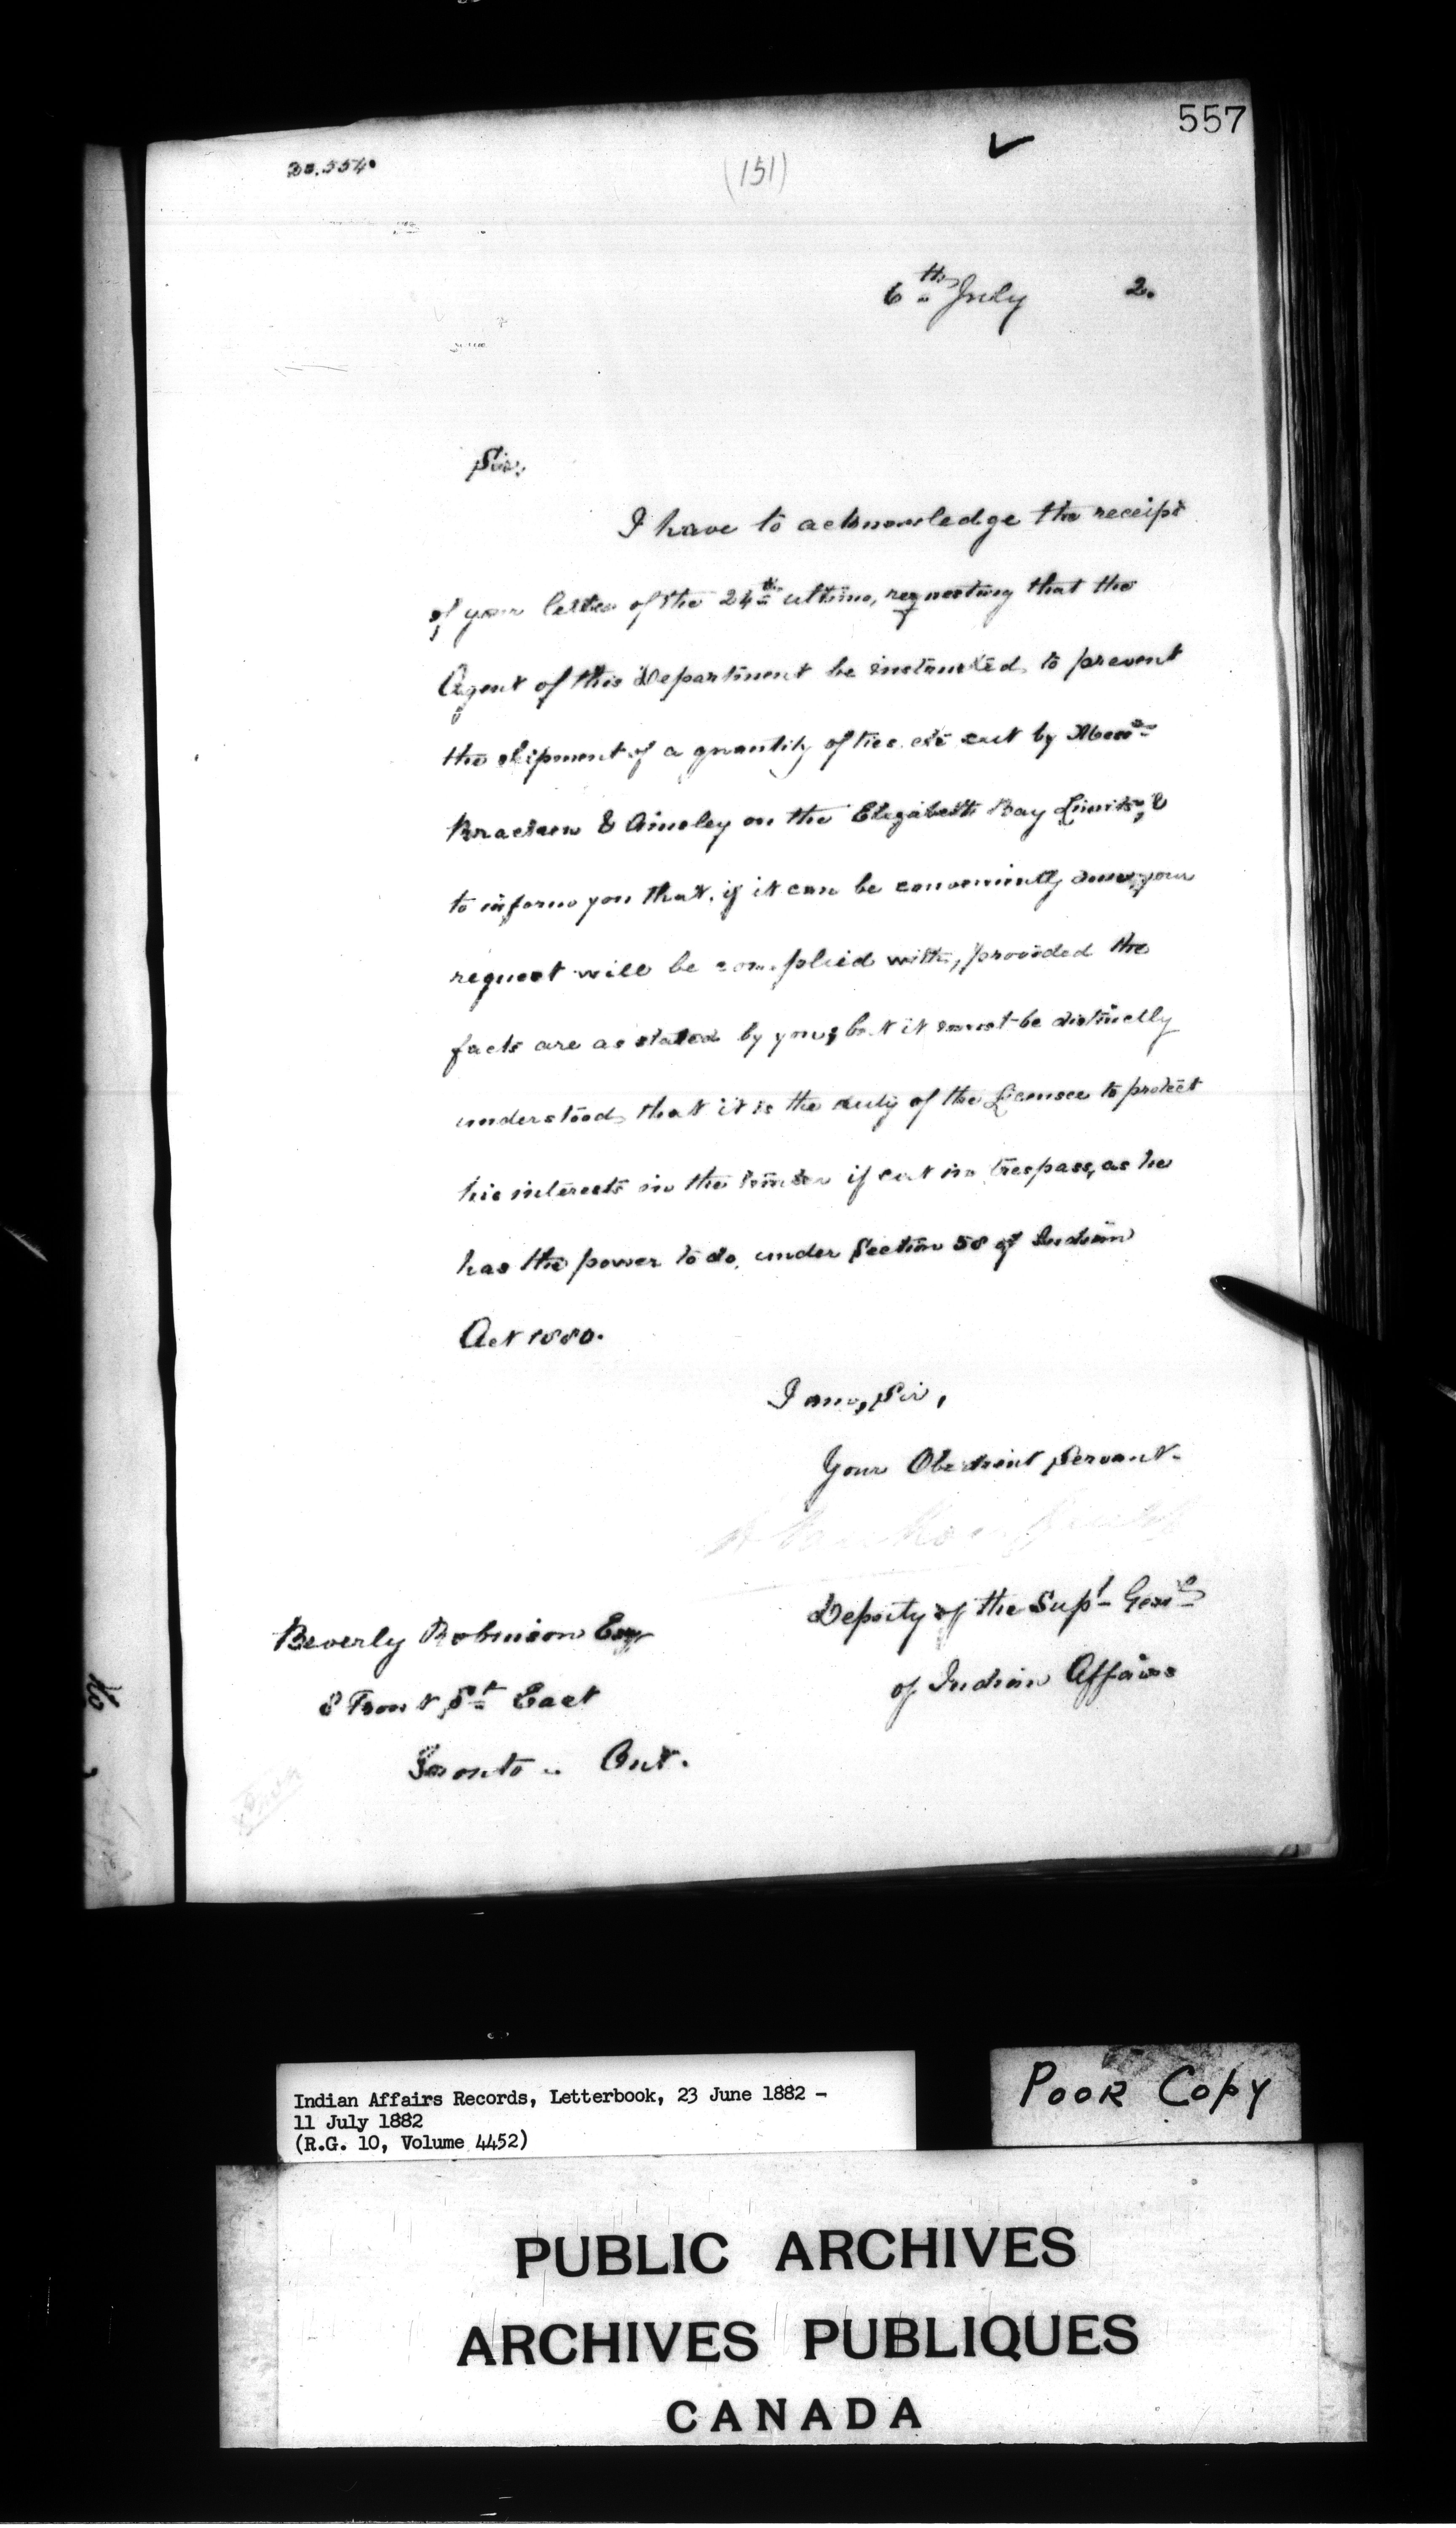 557
20.554.
(151)
6th July 2.
Sir,
I have to acknowledge the receipt
of your letter of the 24th ultimo, requesting that the
Agent of this Department be instructed to prevent
the shipment of a quantity of ties cut by Messrs
& Ainsley on the Elizabeth Bay Limits, &
to inform you that, if it can be conveniently done, your
request will be complied with, provided the
facts are as stated by you; but it must be distinctly
understood that it is the duty of the Licensee to protect
his interests in the timber if cut in trespass, as he
has the power to do, under Section 58 of Indian
Act 1880.
I am, Sir,
Your Obedient Servant.
Deputy of the Supt Genl
of Indian Affairs
Beverly Robinson Esqr
8 Front St East
Toronto .. Ont.
Indian Affairs Records, Letterbook, 23 June 1882 -
11 July 1882
(R.G. 10, Volume 4452)
POOR COPY
PUBLIC ARCHIVES
ARCHIVES PUBLIQUES
CANADA